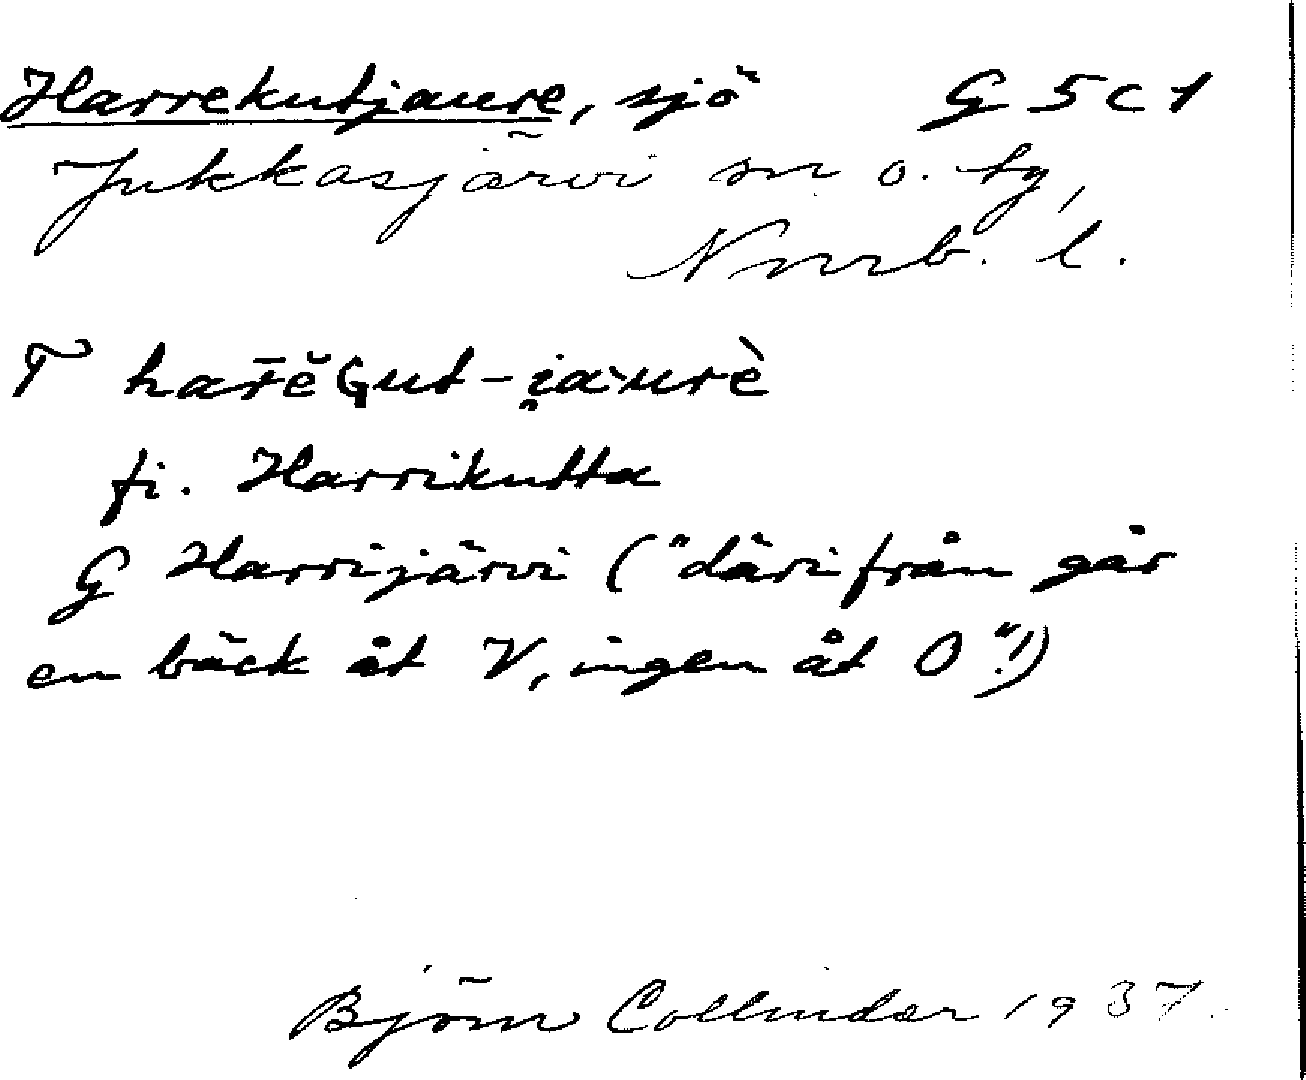 Harrekutjaure, sjö G 5 c 1
Jukkasjärvi sn o. tg,
Nmrb. l.
T har̄ĕGut-i̯a·urè
fi. Harrikutta
G Harrijärvi ("därifrån går
en bäck åt V, ingen åt O"!)
Björn Collinder 1937.